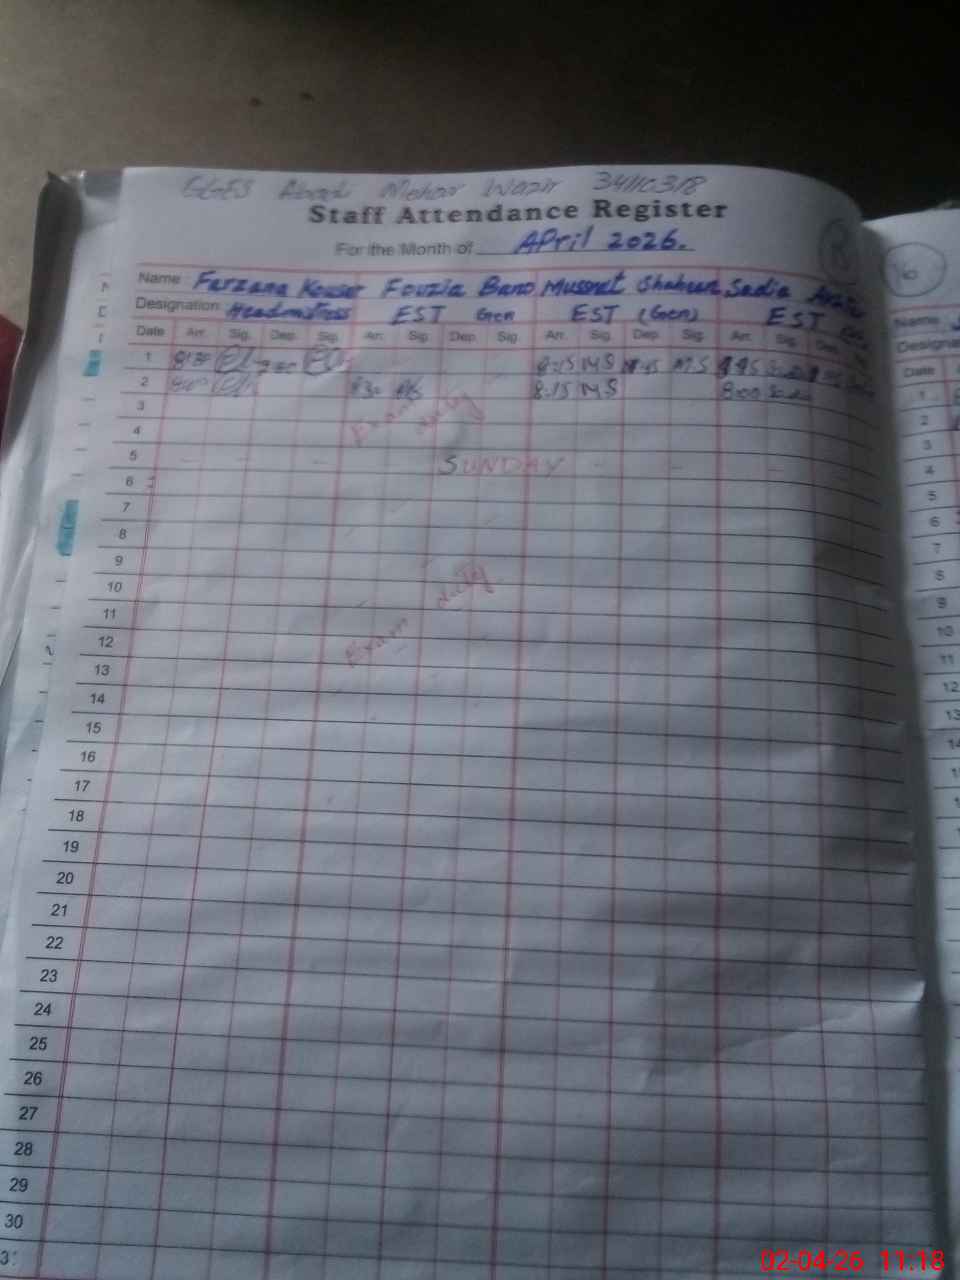 GGES Abadi Mehar Wazir 34110318
Staff Attendance Register
For the Month of April 2026.
Name : Farzana Kouser Fouzia Bano Mussrat Shaheen Sadia
Designation: Headmistress EST Gen EST (Gen) EST
Date Arr. Sig. Dep. Sig. Arr. Sig. Dep. Sig. Arr. Sig. Dep. Sig. Arr. Sig. Dep.
1 8:30 8:15 M.S M.S
2 830 8:15 M.S 8:00
3 Exam duty
4
5 SUNDAY
6
7
8
9
10 Exam duty
11
12
13
14
15
16
17
18
19
20
21
22
23
24
25
26
27
28
29
30
31
16
Name
Designa
Date
1
2
3
4
5
6
7
8
9
10
11
12
13
14
02-04-26 11:18